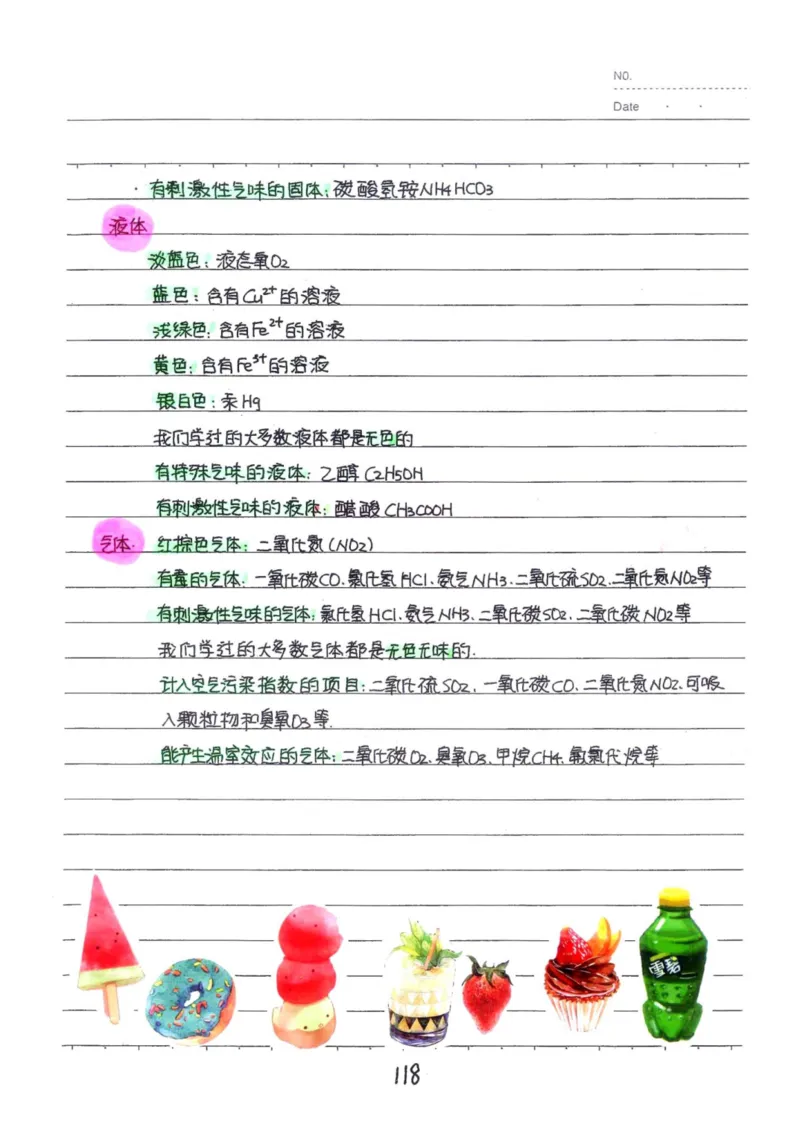 NO.
Date
· 有刺激性气味的固体：碳酸氢铵NH4HCO3
液体
淡蓝色：液态氧O2
蓝色：含有Cu²⁺的溶液
浅绿色：含有Fe²⁺的溶液
黄色：含有Fe³⁺的溶液
银白色：汞Hg
我们学过的大多数液体都是无色的
有特殊气味的液体：乙醇C2H5OH
有刺激性气味的液体：醋酸CH3COOH
气体· 红棕色气体：二氧化氮(NO2)
有毒的气体：一氧化碳CO、氯化氢HCl、氨气NH3、二氧化硫SO2、二氧化氮NO2等
有刺激性气味的气体：氯化氢HCl、氨气NH3、二氧化碳SO2、二氧化碳NO2等
我们学过的大多数气体都是无色无味的.
计入空气污染指数的项目：二氧化硫SO2、一氧化碳CO、二氧化氮NO2、可吸
入颗粒物和臭氧O3等.
能产生温室效应的气体：二氧化碳O2、臭氧O3、甲烷CH4、氟氯代烷等
雪碧
118